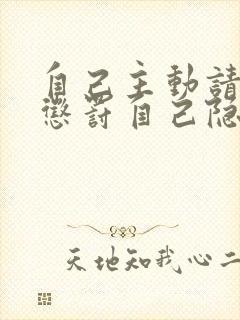 自己主動請
懲罰自己隐
天地知我心二